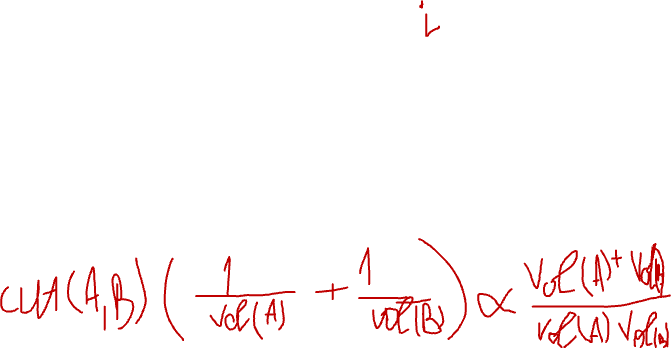 i
cut(A,B) ( 1/vol(A) + 1/vol(B) ) ∝ vol(A) + vol(B) / vol(A) vol(B)